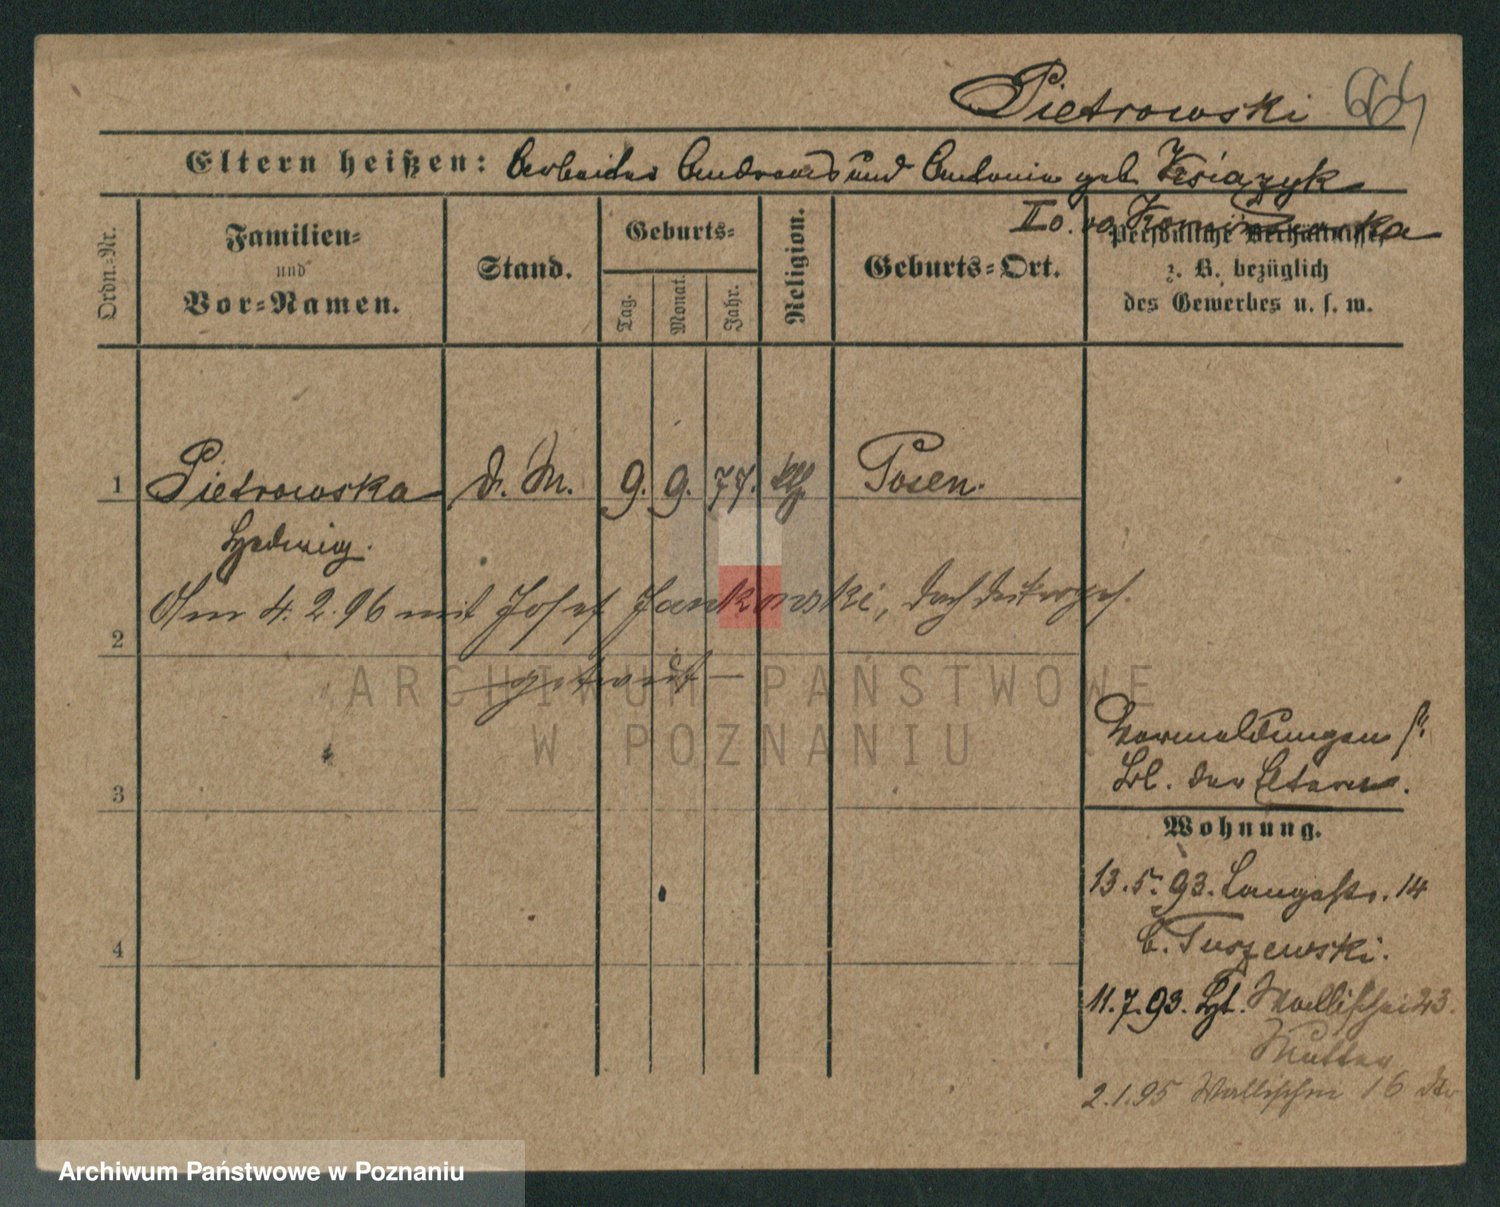 Pietrowski
Eltern heißen: Arbeiter Andreas und Antonia geb Ksiazyk
II o. vo.
Ordn.-Nr.
Familien-
und
Vor-Namen.
Stand.
Geburts-
Tag.
Monat.
Jahr.
Religion.
Geburts-Ort.
persönliche Verhältnisse
z. B. bezüglich
des Gewerbes u. s. w.
1 Pietrowska d. M. 9. 9. 77. kth. Posen.
Hedwig.
Am 4. 2. 96 mit Josef Jankowski, Dachdeckerges.
2
getraut
3
4
Vormeldungen s.
Bl. der Eltern.
Wohnung.
13. 5. 93. Langestr. 14
b. Tuszewski.
11. 7. 93. Wallischei 23.
Mutter
2. 1. 95 Wallischei 16
ARCHIWUM PAŃSTWOWE
W POZNANIU
Archiwum Państwowe w Poznaniu